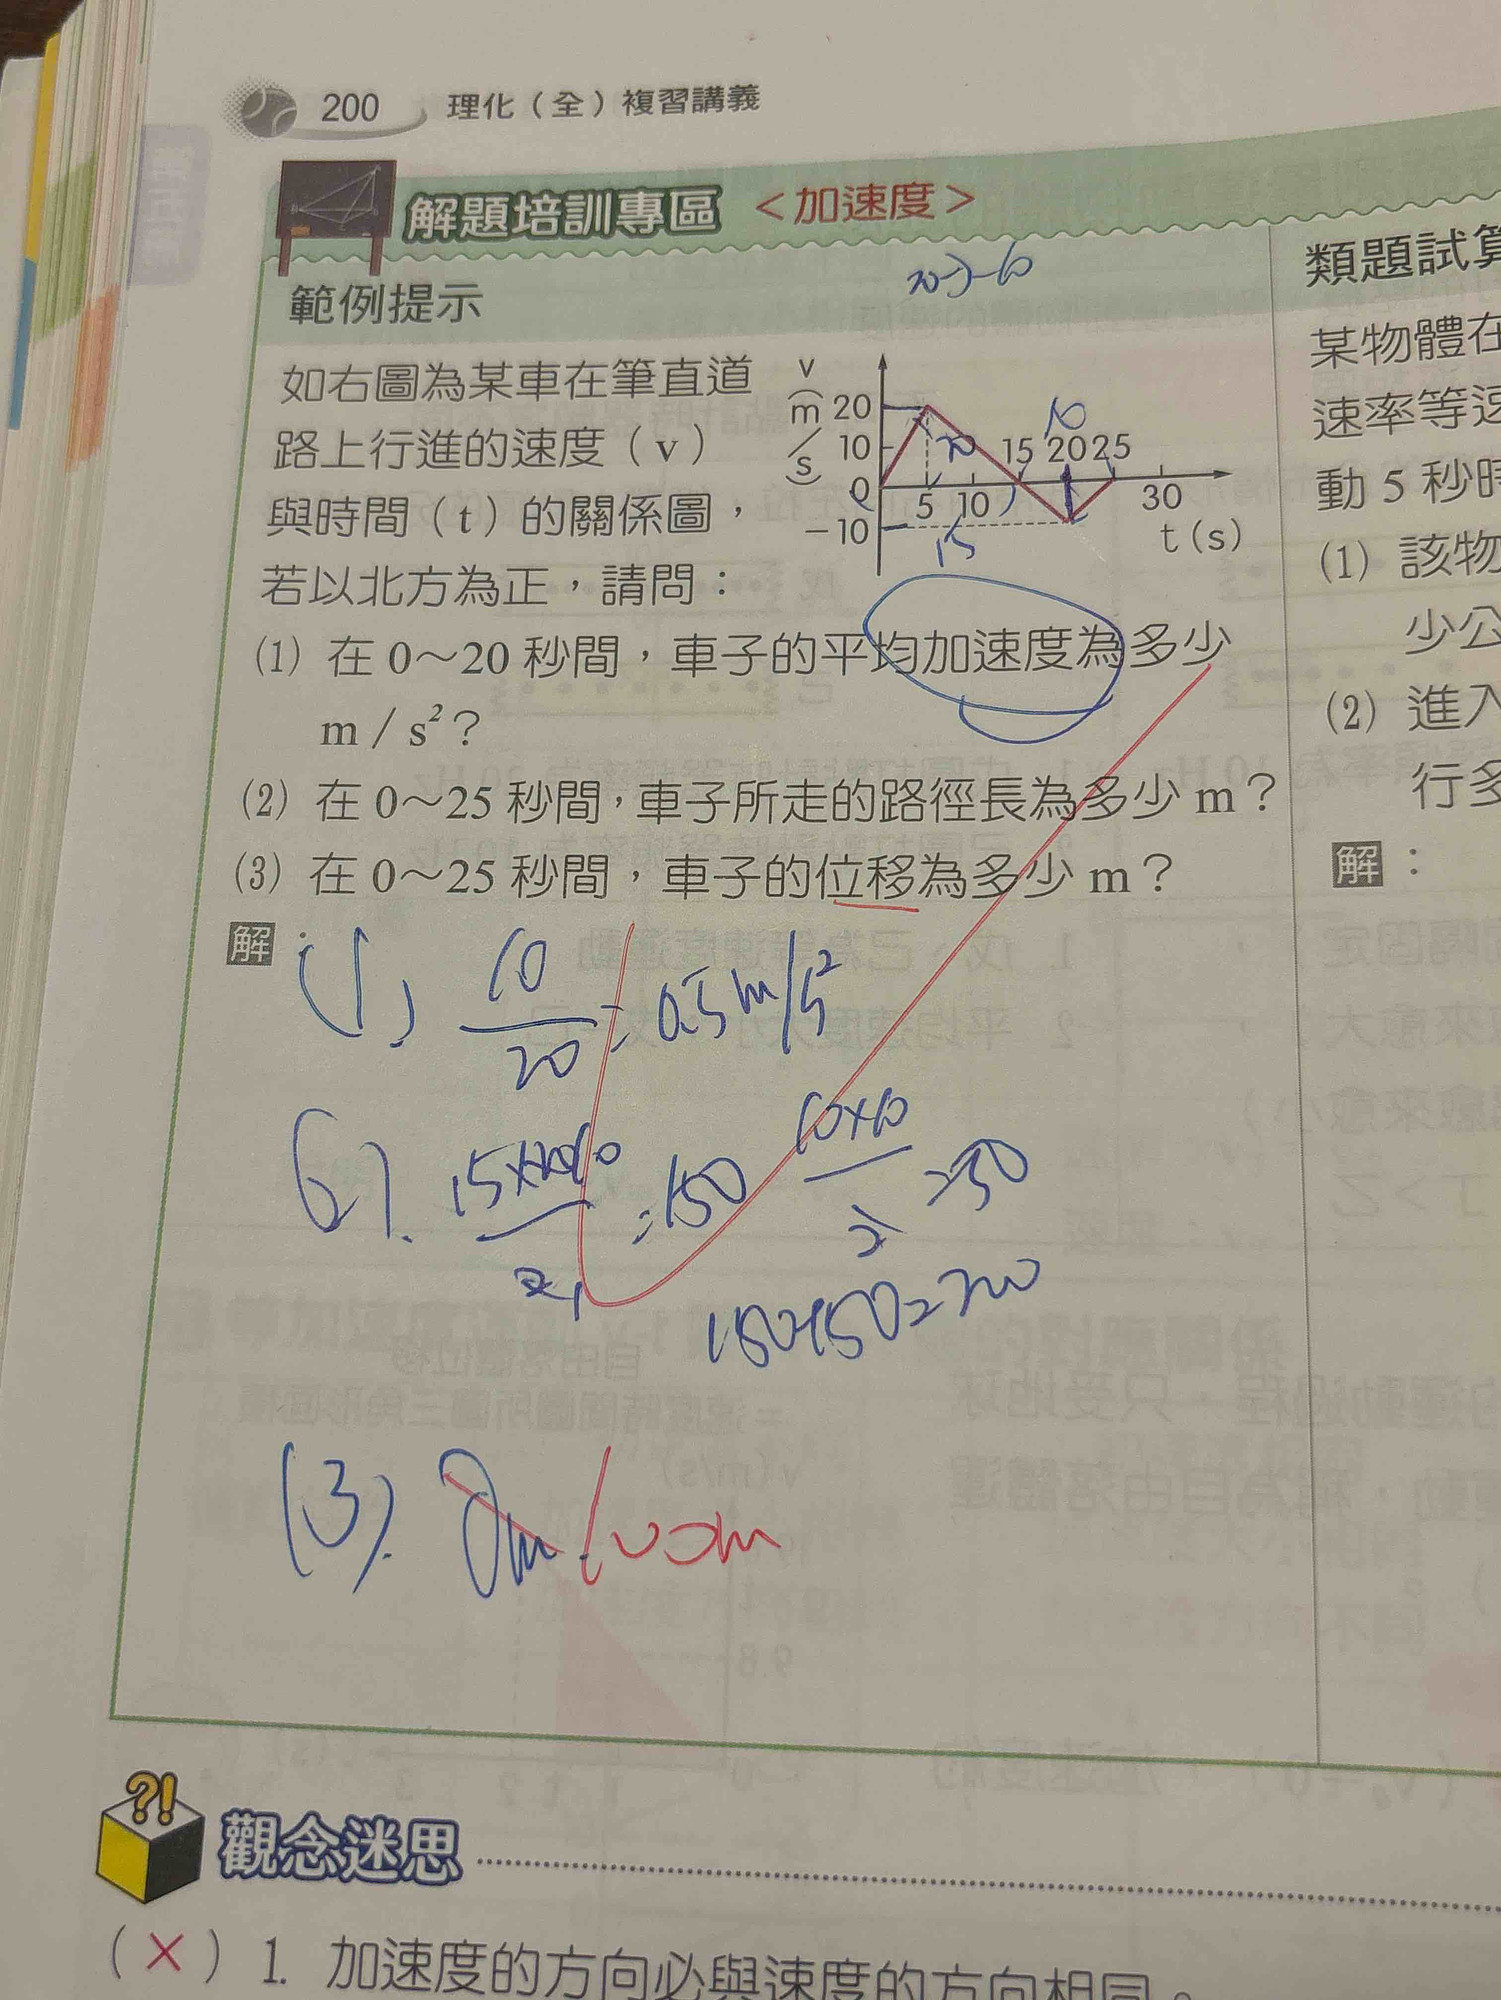 200 理化（全）複習講義
解題培訓專區 <加速度>
範例提示
如右圖為某車在筆直道
路上行進的速度（v）
與時間（t）的關係圖，
若以北方為正，請問：
v
(m/s)
20
10
0
-10
5 10 15 20 25 30
t(s)
10
15
(1) 在 0～20 秒間，車子的平均加速度為多少
m／s²？
(2) 在 0～25 秒間，車子所走的路徑長為多少 m？
(3) 在 0～25 秒間，車子的位移為多少 m？
解：
(1) 10/20 = 0.5 m/s²
(2). =150 10×10/2 =50
150+50=200
(3). 0m 100m
類題試算
某物體在
速率等速
動 5 秒時
(1) 該物
少公
(2) 進入
行多
解：
?!
觀念迷思
（×）1. 加速度的方向必與速度的方向相同。